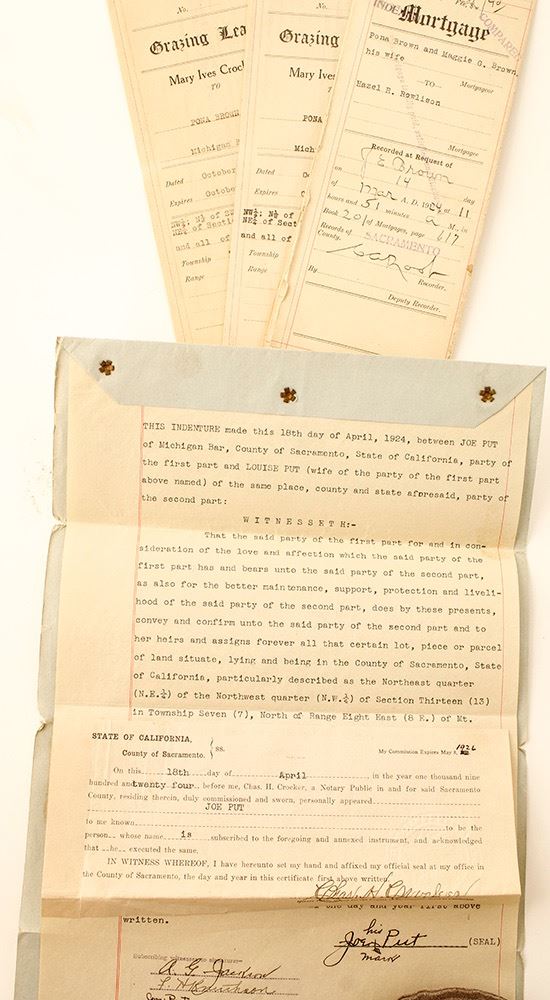 No.
Grazing Lea
Mary Ives Croc
TO
PONA BROWN
Michigan
Dated October
Expires Octob
NW¼; N½ of SW
NE¼ of Section
and all of
Township
Range
No.
Grazing
Mary Ives
PONA
Mich
Dated Octo
Expires
NW¼; N½ of
NE¼ of Sect
and all of
Township
Range
INDE
COMPARED
Mortgage
Pona Brown and Maggie G. Brown,
his wife
TO Mortgagor
Hazel E. Rowlison
Mortgagee
Recorded at Request of
J E Brown
on 14 day
of Mar A. D. 1924 at 11
hours and 51 minutes a M., in
Book 201 of Mortgages, page 617
Records of SACRAMENTO
County.
Recorder.
By
Deputy Recorder.
THIS INDENTURE made this 18th day of April, 1924, between JOE PUT
of Michigan Bar, County of Sacramento, State of California, party of
the first part and LOUISE PUT (wife of the party of the first part
above named) of the same place, county and state aforesaid, party of
the second part:
W I T N E S S E T H:-
That the said party of the first part for and in con-
sideration of the love and affection which the said party of the
first part has and bears unto the said party of the second part,
as also for the better maintenance, support, protection and liveli-
hood of the said party of the second part, does by these presents,
convey and confirm unto the said party of the second part and to
her heirs and assigns forever all that certain lot, piece or parcel
of land situate, lying and being in the County of Sacramento, State
of California, particularly described as the Northeast quarter
(N.E.¼) of the Northwest quarter (N.W.¼) of Section Thirteen (13)
in Township Seven (7), North of Range Eight East (8 E.) of Mt.
STATE OF CALIFORNIA,
County of Sacramento. } ss.
My Commission Expires May 8, 1926
On this 18th day of April in the year one thousand nine
hundred and twenty four, before me, Chas. H. Crocker, a Notary Public in and for said Sacramento
County, residing therein, duly commissioned and sworn, personally appeared
JOE PUT
to me known to be the
person whose name is subscribed to the foregoing and annexed instrument, and acknowledged
that he executed the same.
IN WITNESS WHEREOF, I have hereunto set my hand and affixed my official seal at my office in
the County of Sacramento, the day and year in this certificate first above written.
the day and year first above
written.
his
Joe Put (SEAL)
mark
Subscribing witnesses to signature:
A. G. Jackson
Joe Put